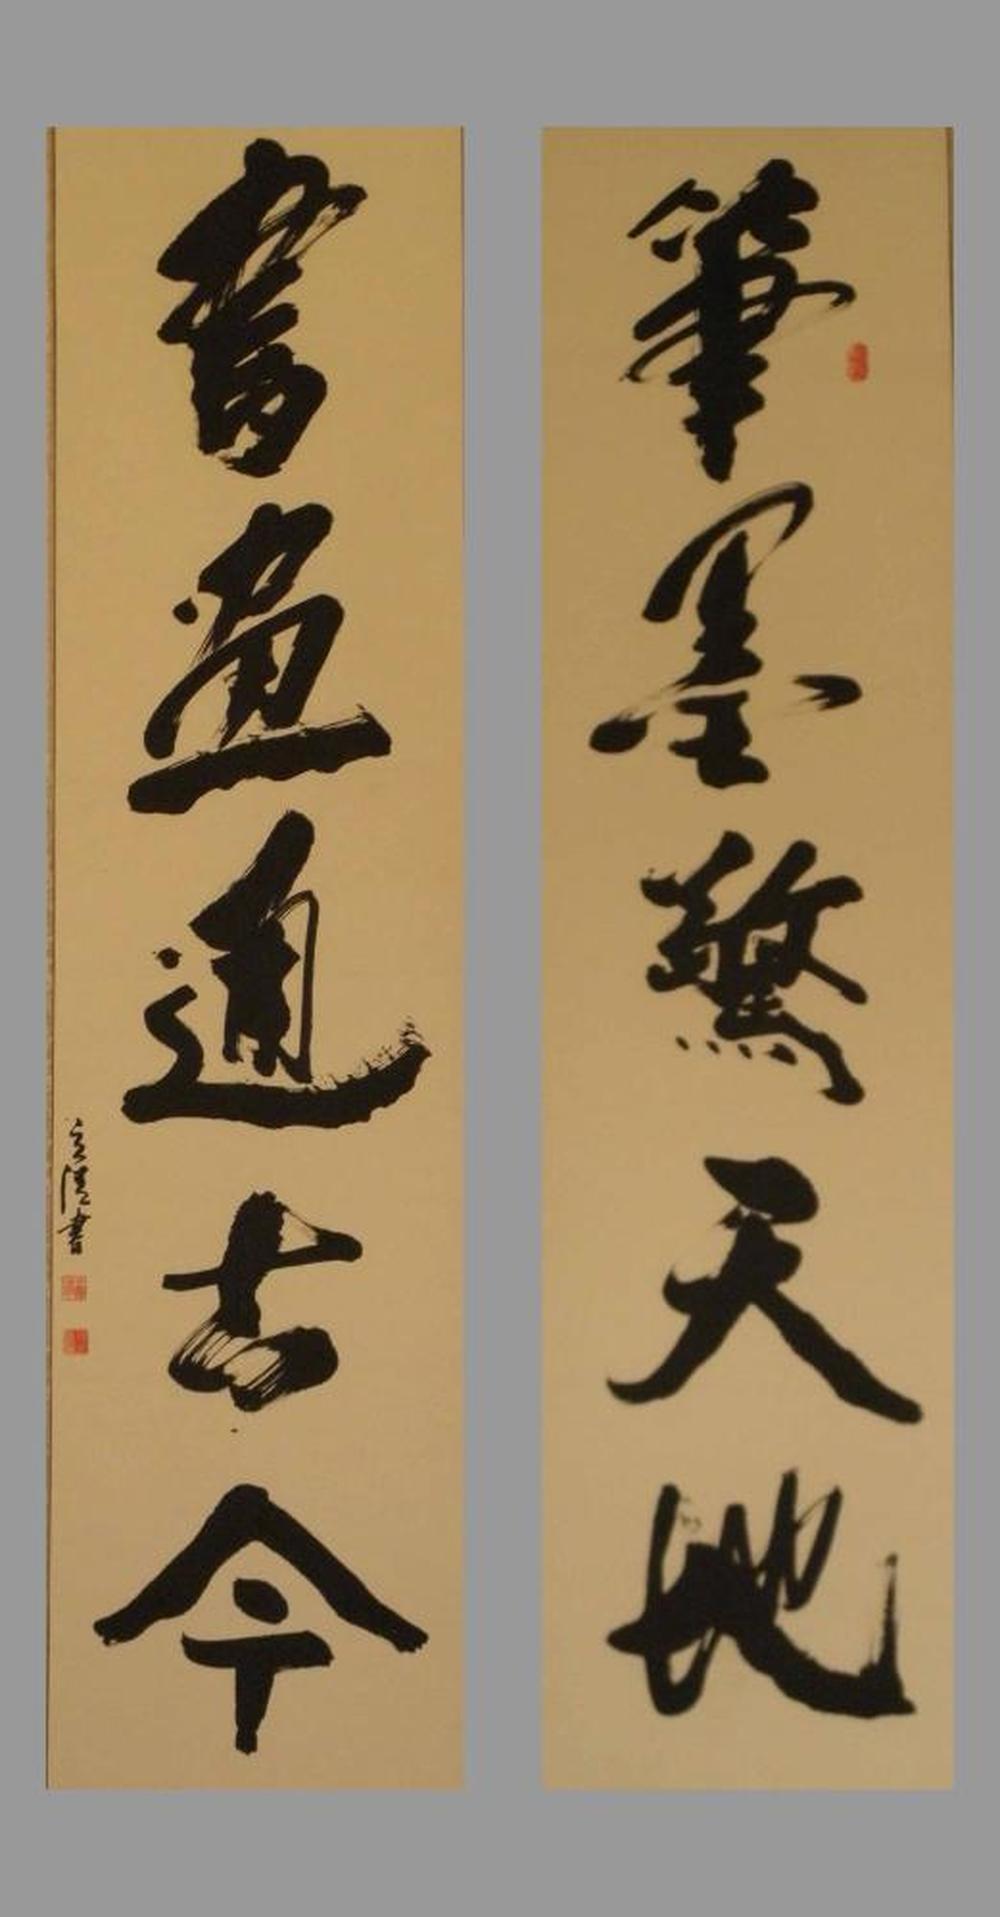 筆墨驚天地
書畫通古今
立清書